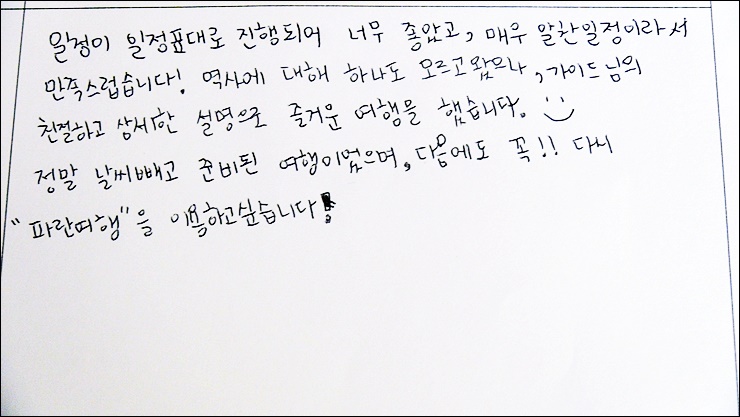 일정이 일정표대로 진행되어 너무 좋았고, 매우 알찬일정이라서
만족스럽습니다! 역사에 대해 하나도 모르고왔으나, 가이드님의
친절하고 상세한 설명으로 즐거운 여행을 했습니다.
정말 날씨빼고 준비된 여행이었으며, 다음에도 꼭!! 다시
"파란여행"을 이용하고싶습니다!